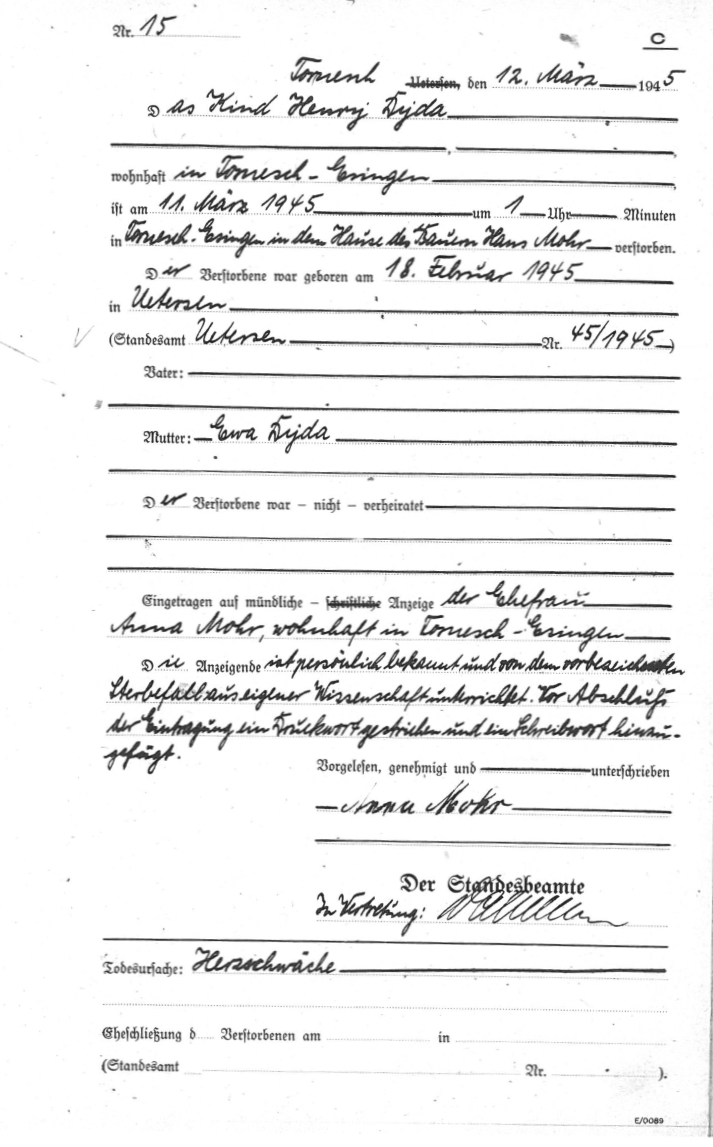 Nr. 15
C
Tornesch Uetersen, den 12. März 1945
Das Kind Henryj Dyda
wohnhaft in Tornesch - Esingen
ist am 11. März 1945 um 1 Uhr Minuten
in Tornesch-Esingen in dem Hause des Bauern Hans Mohr verstorben.
Der Verstorbene war geboren am 18. Februar 1945
in Uetersen
(Standesamt Uetersen Nr. 45/1945)
Vater:
Mutter: Ewa Dyda
Der Verstorbene war – nicht – verheiratet
Eingetragen auf mündliche – schriftliche Anzeige der Ehefrau
Anna Mohr, wohnhaft in Tornesch - Esingen
Die Anzeigende ist persönlich bekannt und von dem vorbezeichneten
Sterbefall aus eigener Wissenschaft unterrichtet. Vor Abschluß
der Eintragung ein Druckwort gestrichen und ein Schreibwort hinzu-
gefügt.
Vorgelesen, genehmigt und unterschrieben
Anna Mohr
Der Standesbeamte
In Vertretung:
Todesursache: Herzschwäche
Eheschließung d Verstorbenen am in
(Standesamt Nr. ).
E/0089